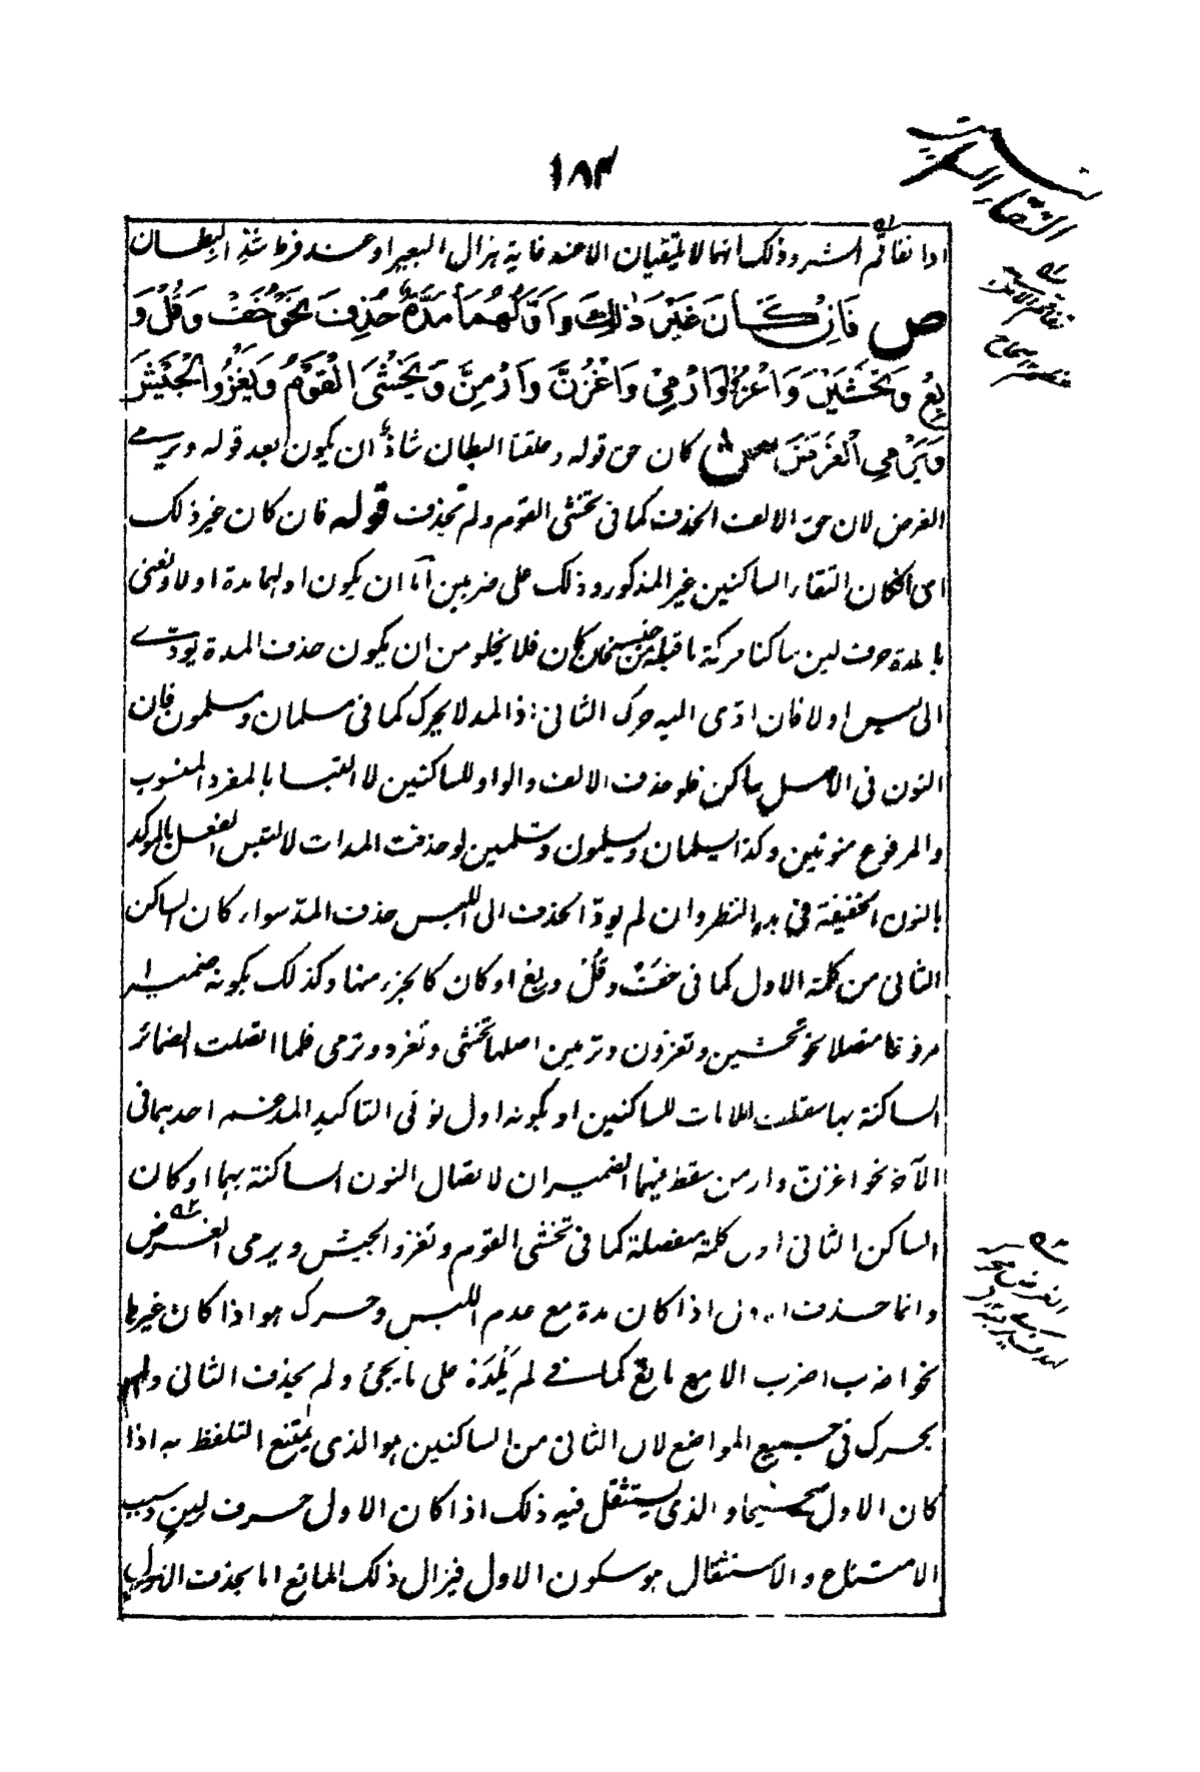 ١٨٣
التقاء الساكنين
اذا تفاقم الشر وذلك انهما لا يلتقيان الا عند غاية هزال البعير او عند فرط شد البطان
ص فَاِنْ كَانَ غَيْرَ ذٰلِكَ وَاَوَّلُهُمَا مَدَّةٌ حُذِفَ نَحْوُ خَفْ وَقُلْ وَ
بِعْ وَتَخْشَيْنَ وَاغْزُوْا وَارْمِيْ وَاغْزُنَّ وَارْمِنَّ وَيَخْشَى الْقَوْمُ وَيَغْزُو الْجَيْشُ
وَيَرْمِي الْغَرَضَ ش كان حق قوله وحلقتا البطان شاذ ان يكون بعد قوله ويرمي
الغرض لان حق الالف الحذف كما في تخشى القوم ولم تحذف قوله فان كان غير ذلك
اى ان كان التقاء الساكنين غير المذكور وذلك على ضربين اما ان يكون اولهما مدة او لا ونعنى
بالمدة حرف لين ساكنا حركة ما قبله من جنسه فان كان فلا يخلو من ان يكون حذف المدة يودّي
الى لبس او لا فان ادّى اليه حرك الثانى اذ المد لا يحرك كما فى مسلمان ومسلمون فان
النون فى الاصل ساكن فلو حذف الالف والواو للساكنين لا التبسا بالمفرد المنصوب
والمرفوع منونين وكذا يسلمان ويسلمون وتسلمين لو حذفت المدات لالتبس الفعل بالموكد
بالنون الخفيفة فى بدء النظر وان لم يودّ الحذف الى اللبس حذف المدّ سواء كان الساكن
الثانى من كلمة الاول كما فى خَفْ وقُلْ وبِعْ او كان كالجزء منها وكذلك بكونه ضميرا
مرفوعا متصلا نحو تخشين وتغزون وترمين اصلها تخشى وتغزو وترمى فلما اتصلت الضمائر
الساكنة بها سقطت اللامات للساكنين او بكونه اول نونى التاكيد المدغم احدهما فى
الآخر نحو اغزنّ وارمن سقط فيهما الضميران لاتصال النون الساكنة بهما او كان
الساكن الثانى اول كلمة منفصلة كما فى تخشى القوم وتغزو الجيش ويرمى الغرض
وانما حذف الاول اذا كان مدة مع عدم اللبس وحرك هو اذا كان غيرها
نحو اضرب اضرب الا مع مانع كما فى لم يَلْدَهُ على ما يجئ ولم يحذف الثانى ولم
يحرك فى جميع المواضع لان الثانى من الساكنين هو الذى يمتنع التلفظ به اذا
كان الاول صحيحا والذى يستثقل فيه ذلك اذا كان الاول حرف لين وسبب
الامتناع والاستثقال هو سكون الاول فيزال ذلك المانع اما بحذف الاول